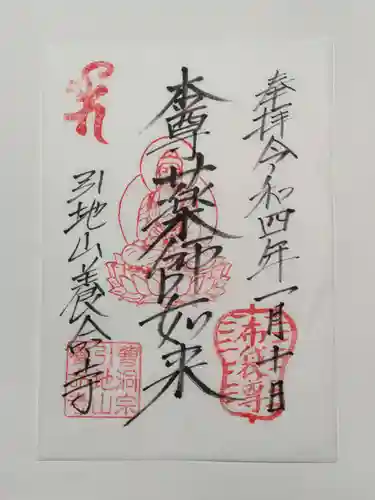 奉拝令和四年一月十日
布袋尊
本尊薬師如来
引地山養命寺
曹洞宗
引地山